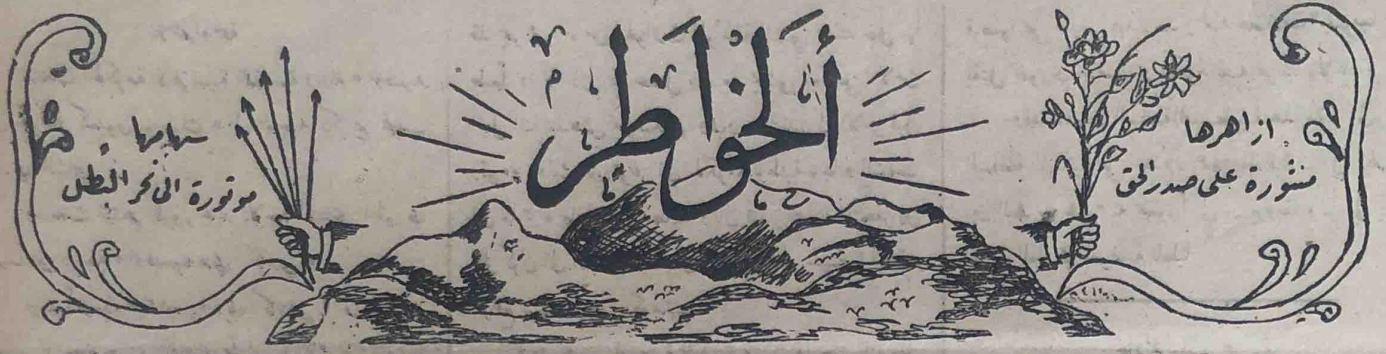 أَلخَوَاطِرْ
ازاهرها
منثورة على صدر الحق
سهامها
موتورة الى نحر البطل